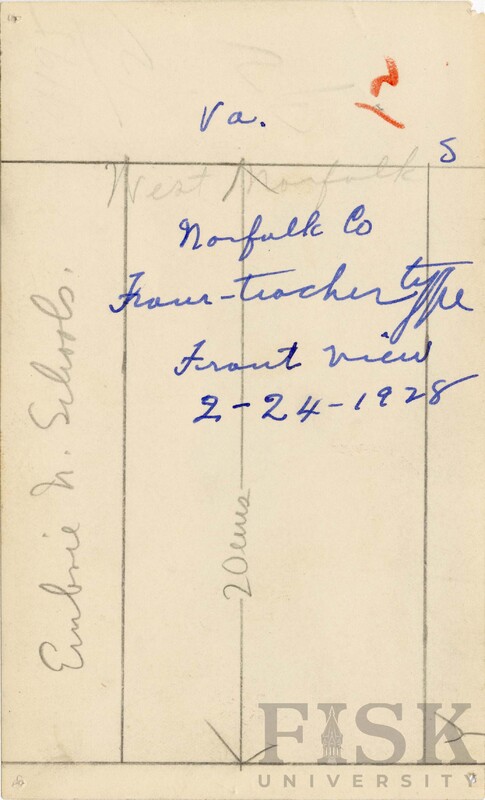 Va.
12
S
West Norfolk
Norfolk Co
Four-teacher type
Front view
2-24-1928
Embrie N. Schools.
20 ems
FISK
UNIVERSITY